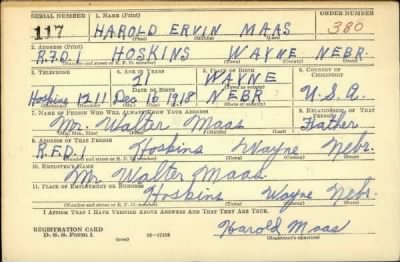 SERIAL NUMBER 1. NAME (Print) ORDER NUMBER
117 HAROLD ERVIN MAAS 380
(First) (Middle) (Last)
2. ADDRESS (Print)
R.F.D.1 HOSKINS WAYNE NEBR.
(Number and street or R. F. D. number) (Town) (County) (State)
3. TELEPHONE 4. AGE IN YEARS 5. PLACE OF BIRTH 6. COUNTRY OF CITIZENSHIP
21 WAYNE
DATE OF BIRTH
Hoskins 1211 Dec 1918 NEBR. U.S.A.
7. NAME OF PERSON WHO WILL ALWAYS KNOW YOUR ADDRESS 8. RELATIONSHIP OF THAT PERSON
Mr. Walter Maas Father
(Mr., Mrs., Miss) (First) (Middle) (Last)
9. ADDRESS OF THAT PERSON
R.F.D.1 Hoskins Wayne Nebr.
(Number and street or R. F. D. number) (Town) (County) (State)
10. EMPLOYER'S NAME
Mr. Walter Maas
11. PLACE OF EMPLOYMENT OR BUSINESS
Hoskins Wayne Nebr.
(Number and street or R. F. D. number) (Town) (County) (State)
I AFFIRM THAT I HAVE VERIFIED ABOVE ANSWERS AND THAT THEY ARE TRUE.
REGISTRATION CARD
D. S. S. FORM 1 (over) Harold Maas
(Registrant's signature)